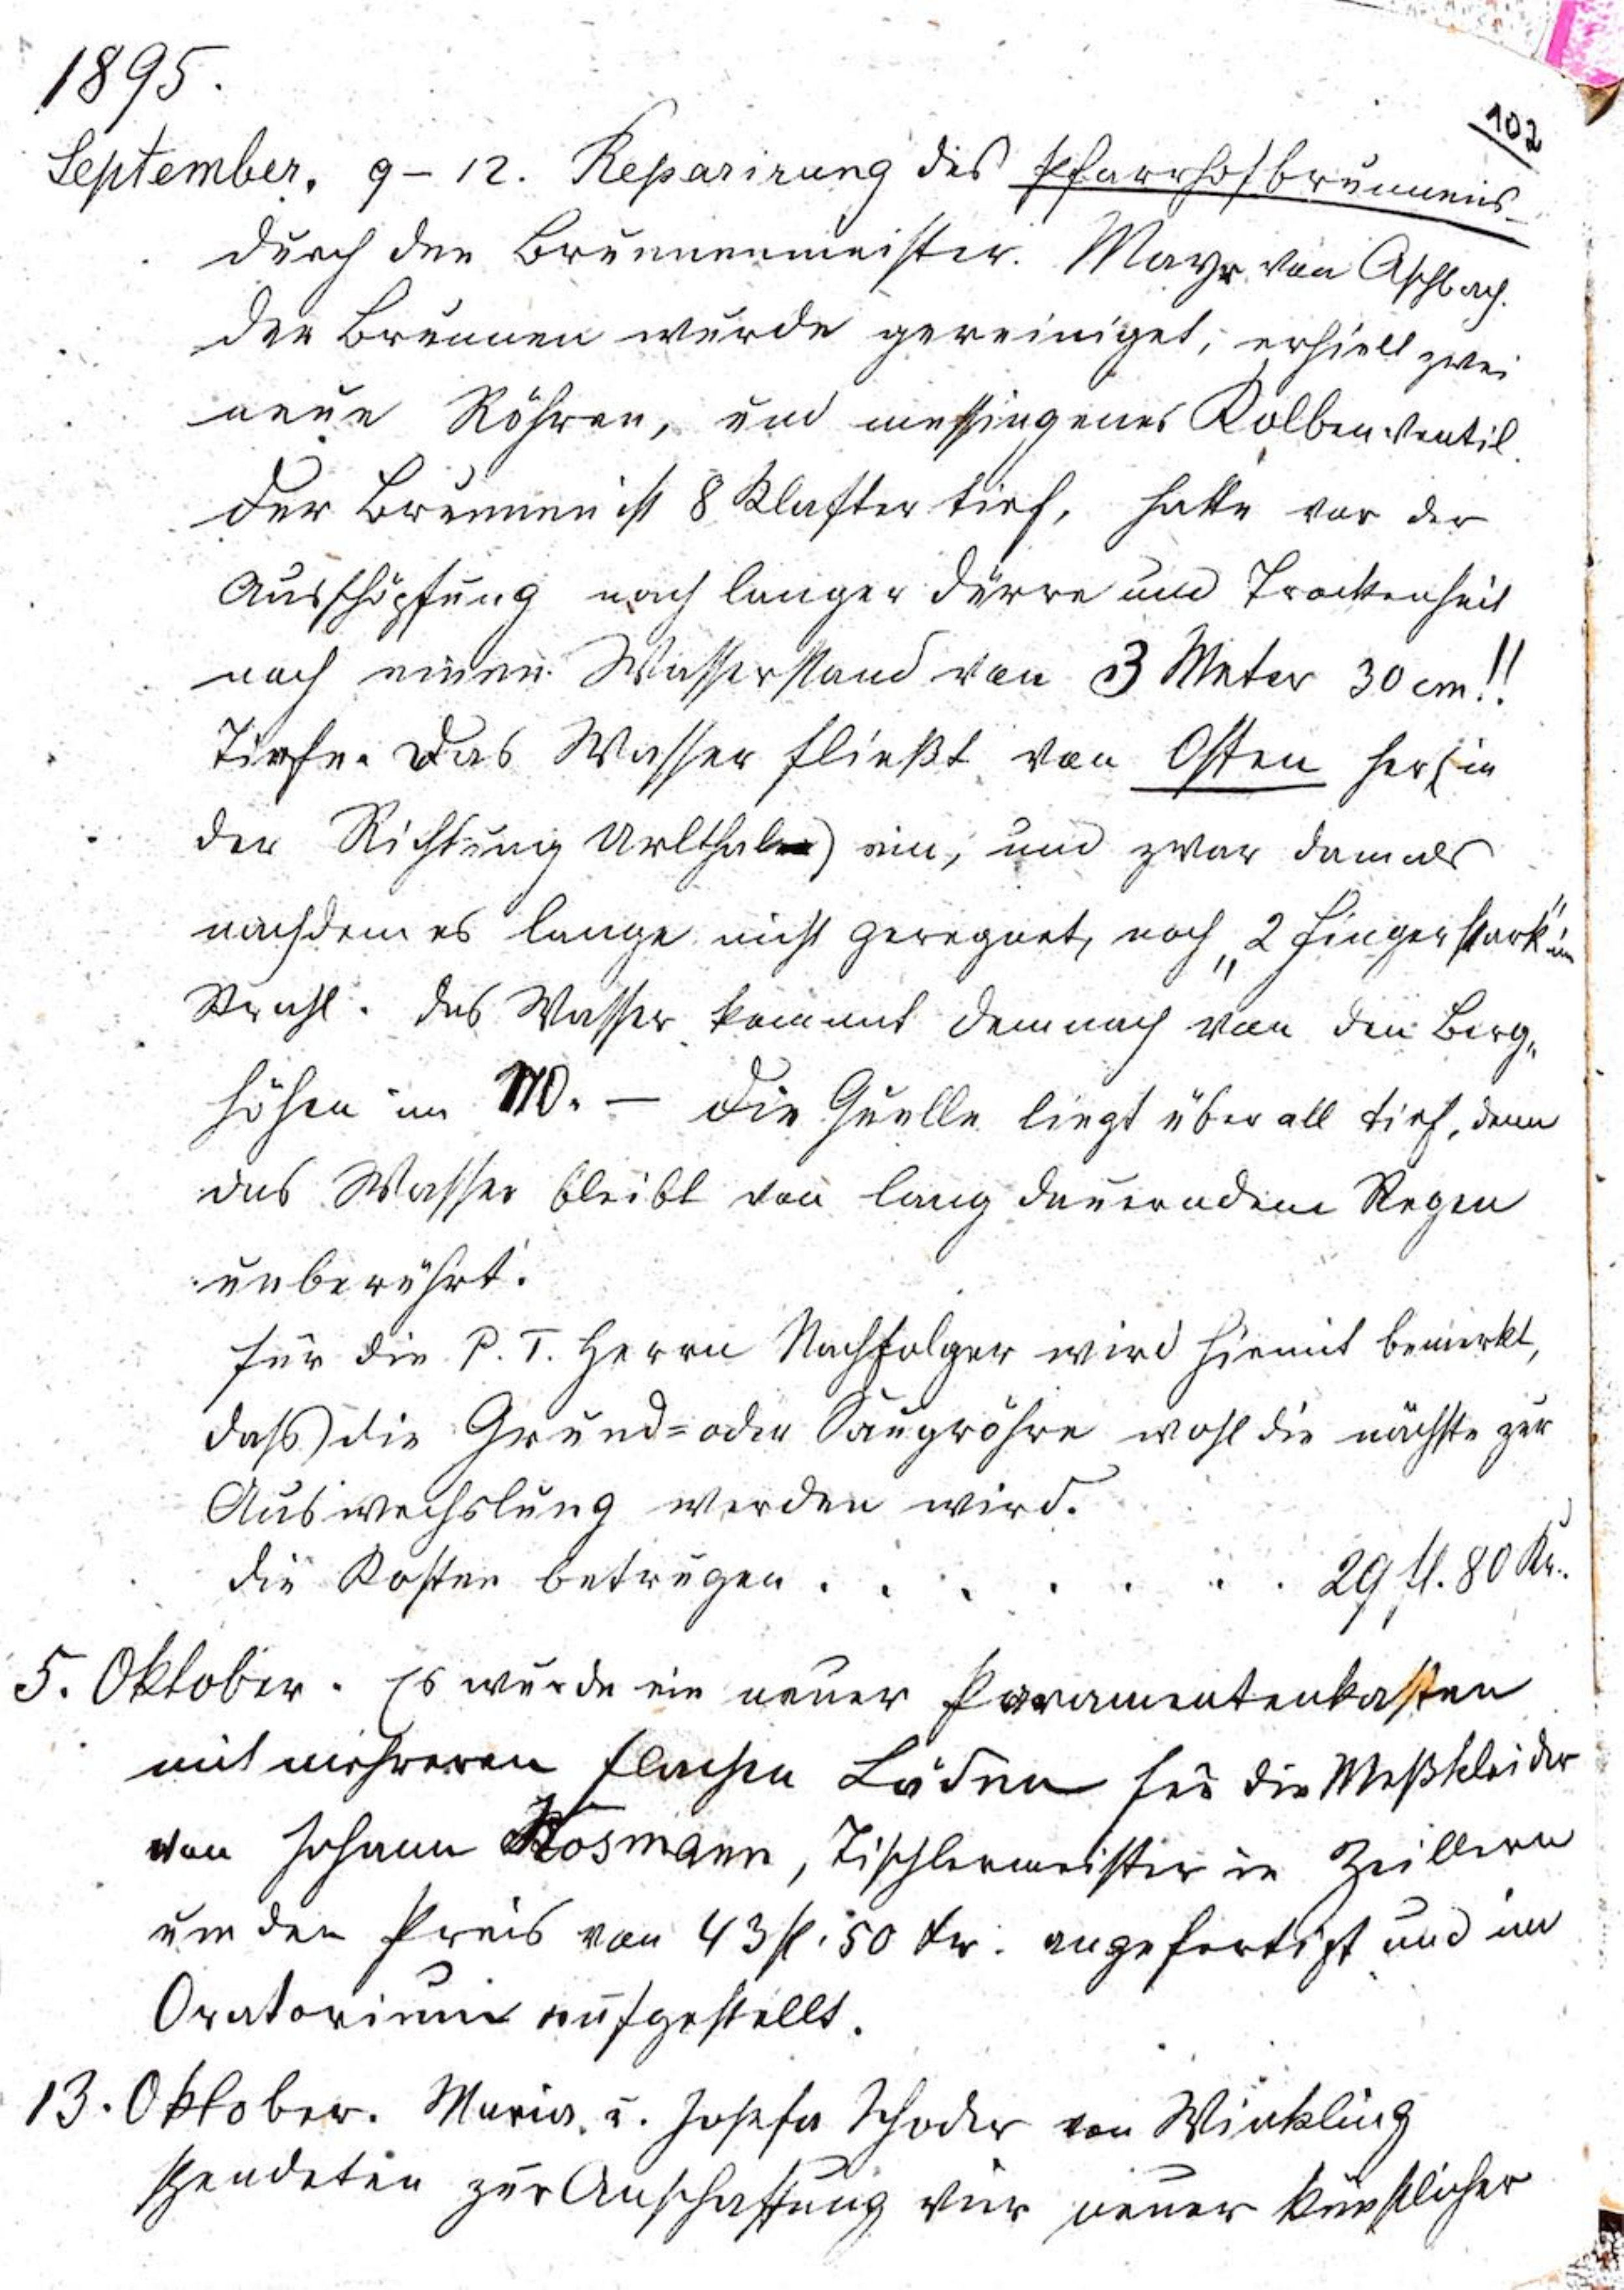 1895.
102
September. 9 – 12. Reparirung des Pfarrhofbrunnens
durch den Brunnenmeister. Mayr von Aschbach.
Der Brunnen wurde gereiniget, erhielt zwei
neue Röhren, und messingenes Kolbenventil.
Der Brunnen ist 8 Klafter tief, hatte vor der
Ausschöpfung nach langer Dürre und Trockenheit
noch einen Wasserstand von 3 Meter 30 cm!!
Tiefe. Das Wasser fließt von Osten her (in
der Richtung Urlthal) ein, und zwar damals
nachdem es lange nicht geregnet, noch „2 Finger stark" im
Strahl. Das Wasser kommt demnach von den Berg„
höhen im NO. — Die Quelle liegt überall tief, denn
das Wasser bleibt von lang dauerndem Regen
unberührt.
Für die P. T. Herrn Nachfolger wird hiemit bemerkt,
dass die Grund= oder Saugröhre wohl die nächste zur
Auswechslung werden wird.
Die Kosten betrugen . . . . . . . . 29 fl. 80 Kr.
5. Oktober. Es wurde ein neuer Paramentenkasten
mit mehreren flachen Läden für die Meßkleider
von Johann Kosmann, Tischlermeister in Zeillern
um den Preis von 43 fl. 50 kr. angefertigt und im
Oratorium aufgestellt.
13. Oktober. Maria u. Josefa Schoder von Winkling
spendeten zur Anschaffung vier neuer künstlicher